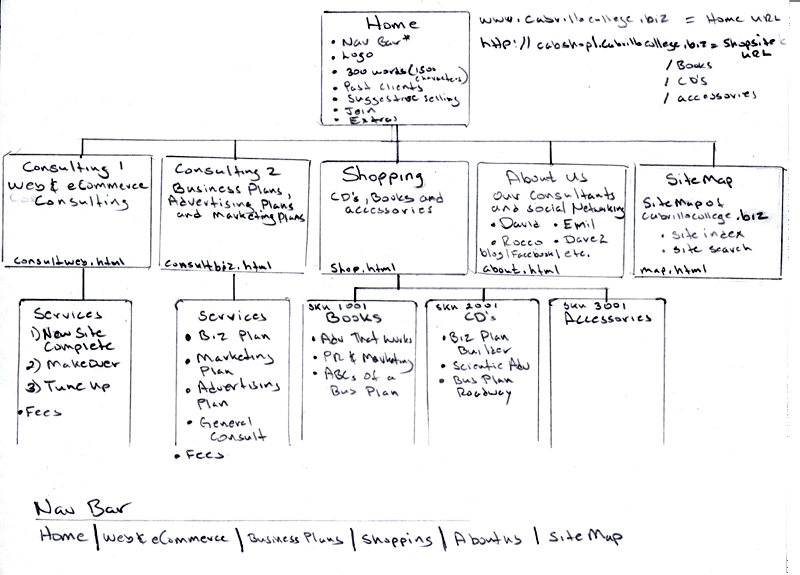 Home
• Nav Bar*
• Logo
• 300 words (1500 characters)
• Past Clients
• Suggestive selling
• Join
• Extras
www.cabrillocollege.biz = Home URL
http://cabshop1.cabrillocollege.biz = Shopsite URL
/ Books
/ CD's
/ accessories
Consulting 1
Web & eCommerce
Consulting
consultweb.html
Consulting 2
Business Plans,
Advertising Plans
and Marketing Plans
consultbiz.html
Shopping
CD's, Books and
accessories
Shop.html
About Us
our consultants
and social Networking
• David • Emil
• Rocco • Dave2
blog/Facebook/etc.
about.html
SiteMap
SiteMap of
cabrillocollege.biz
• site index
• site search
map.html
Services
1) New Site
Complete
2) Makeover
3) Tune Up
• Fees
Services
• Biz Plan
• Marketing
Plan
• Advertising
Plan
• General
Consult
• Fees
SKU 1001
Books
• Adv That works
• PR & Marketing
• ABCs of a
Bus Plan
SKU 2001
CD's
• Biz Plan
Builder
• Scientic Adv
• Bus Plan
Roadway
SKU 3001
Accessories
Nav Bar
Home | Web & eCommerce | Business Plans | Shopping | About us | Site Map